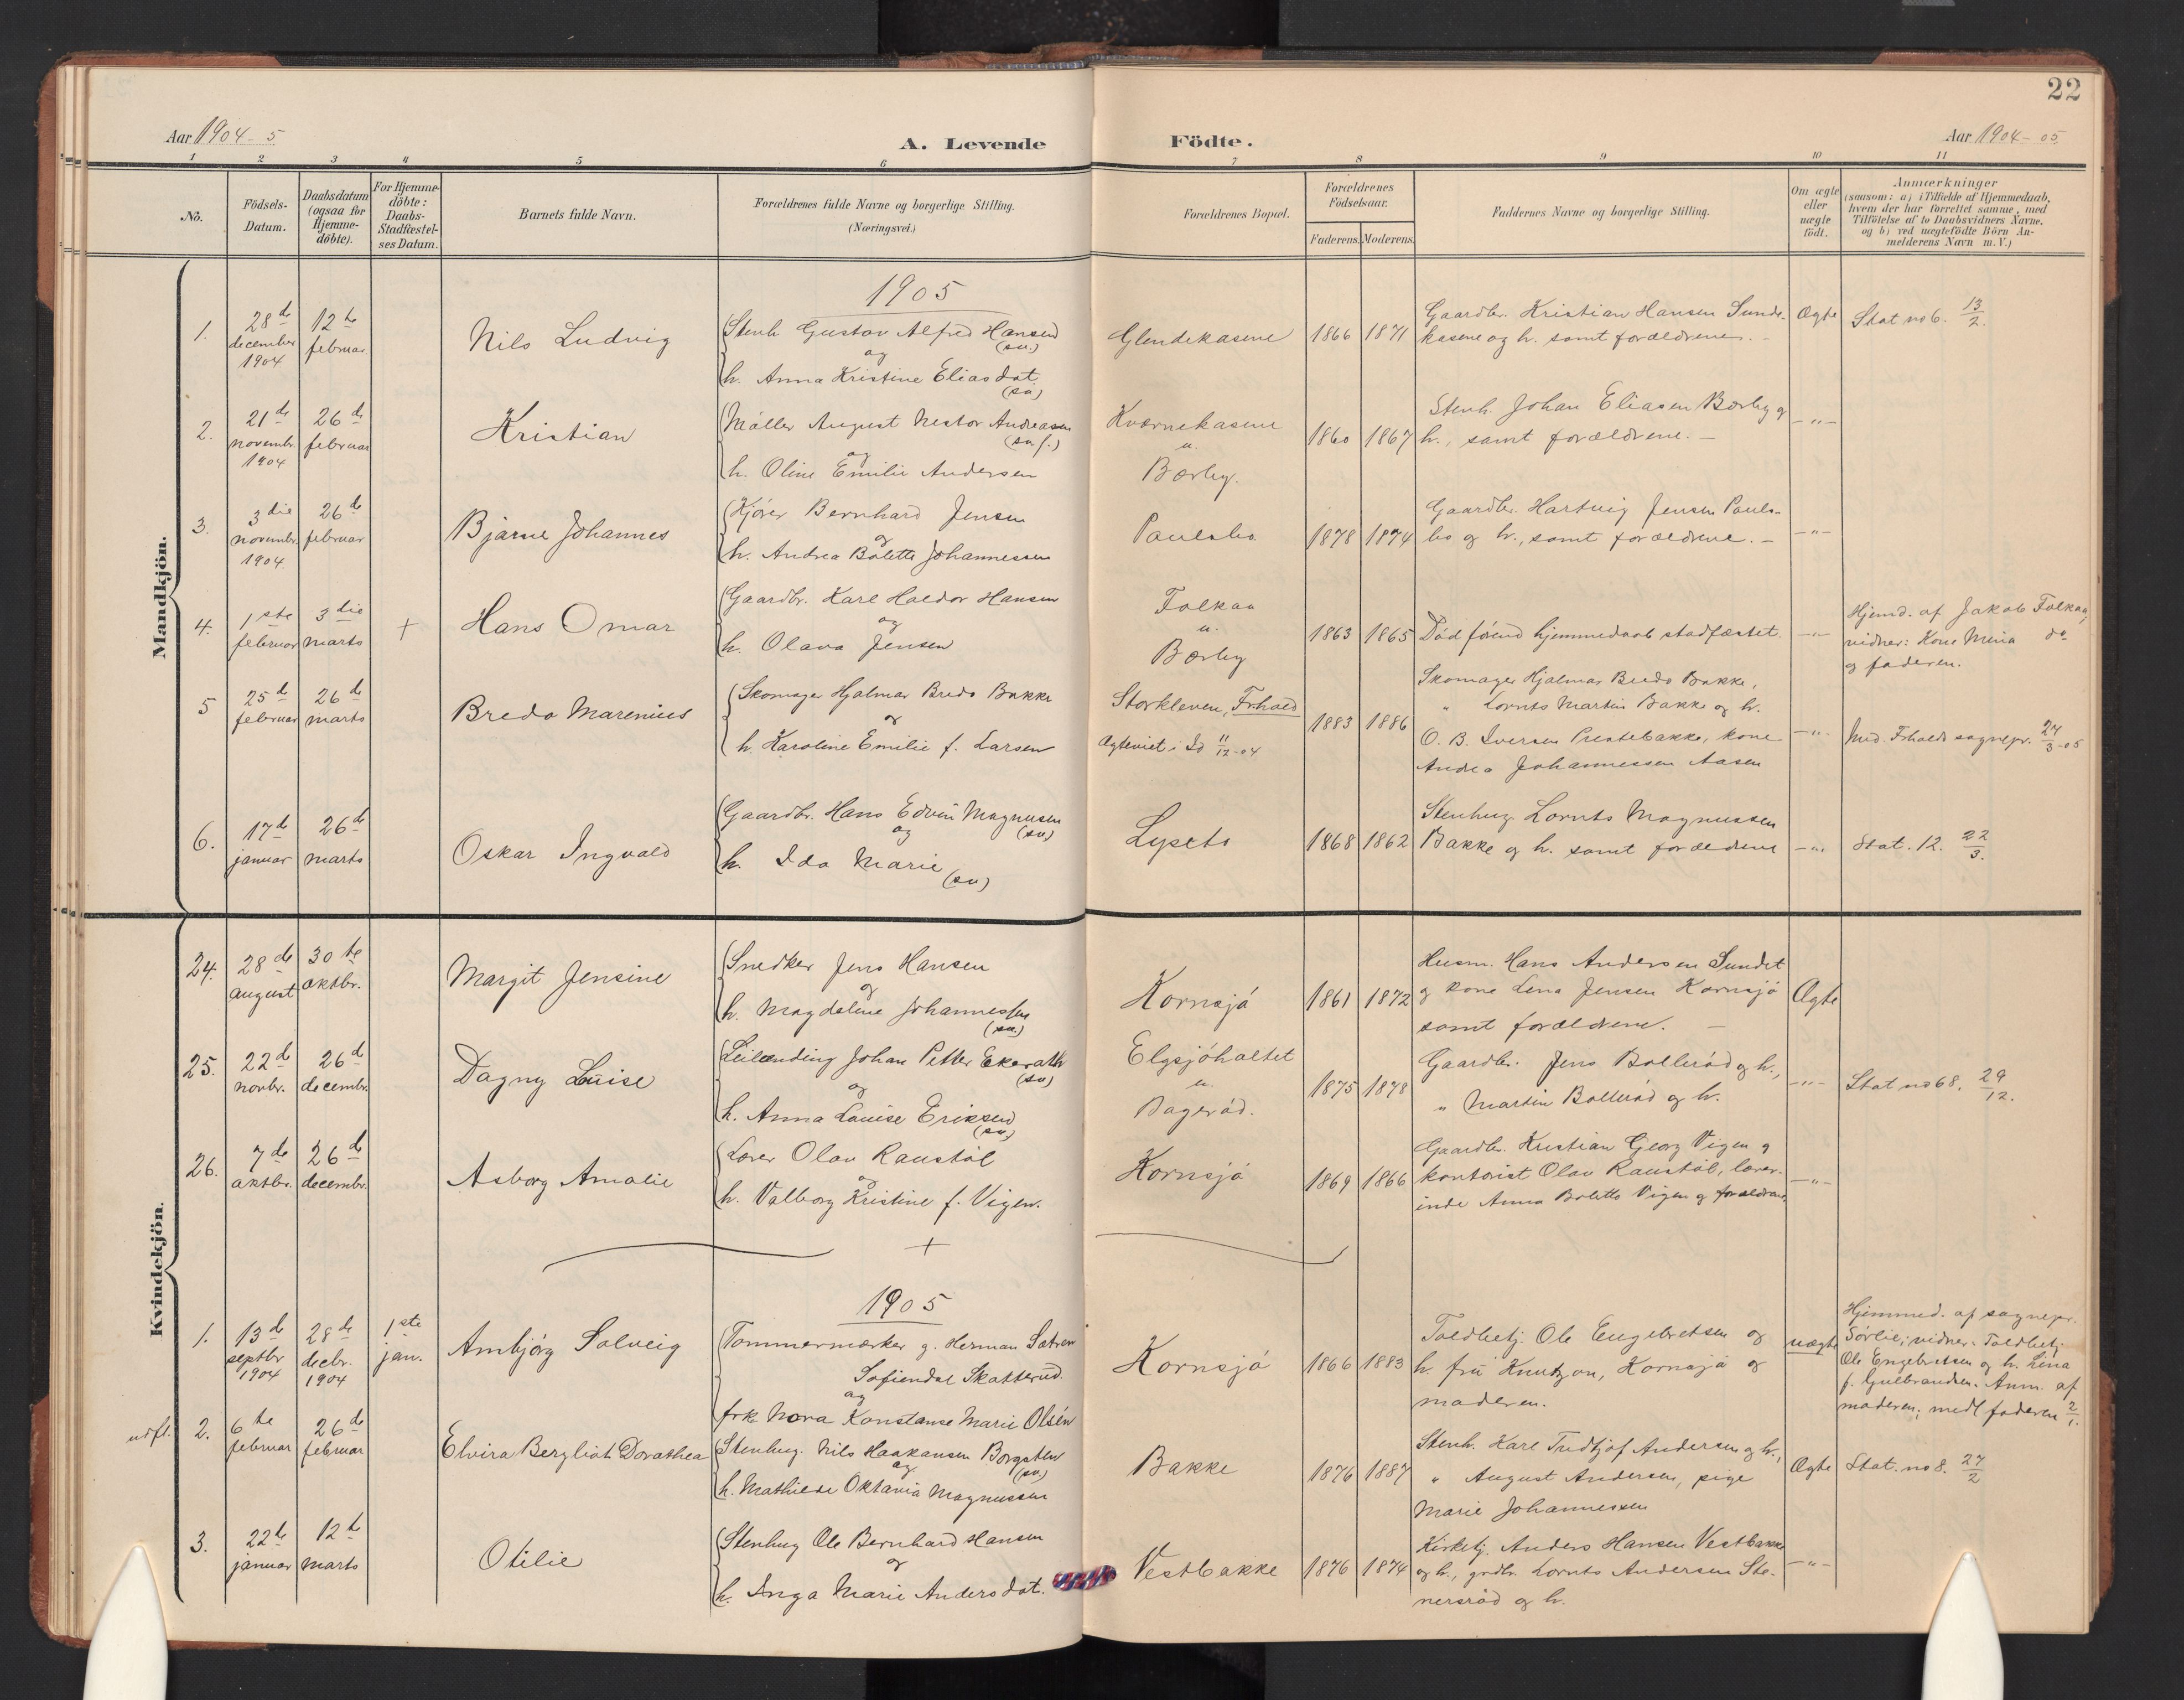 22
Aar 1904-5
A. Levende
Födte.
Aar 1904-05
1 2 3 4 5 6 7 8 9 10 11
No.
Födsels-
Datum.
Daabsdatum
(ogsaa för
Hjemme-
döbte).
For Hjemme-
döbte:
Daabs-
Stadfæstel-
ses Datum.
Barnets fulde Navn.
Forældrenes fulde Navne og borgerlige Stilling.
(Næringsvei.)
Forældrenes Bopæl.
Forældrenes
Födselsaar.
Faderens. Moderens.
Faddernes Navne og borgerlige Stilling.
Om ægte
eller
uægte
födt.
Anmærkninger
(saasom: a) i Tilfælde af Hjemmedaab,
hvem der har forrettet samme, med
Tilföielse af to Daabsvidners Navne,
og b) ved uægtefödte Börn An-
melderens Navn m. V.)
Mandkjön.
1905
1.
28de
december
1904
12te
februar
Nils Ludvig
Stenh. Gustav Alfred Hansen
(sv.)
og
h. Anna Kristine Eliasdat.
(sv.)
Glendekasene
1866 1871
Gaardbr. Kristian Hansen Sunde-
kasene og h. samt forældrene. -
Ægte
Stat no 6. 13/2.
2.
21de
novembr.
1904
26de
februar
Kristian
Møller August Nestor Andreasen
(sv. f.)
og
h. Oline Emilie Andersen
Kværnekasene
u.
Bærby.
1860 1867
Stenh. Johan Eliasen Bærby og
h., samt forældrene. -
-"-
3.
3die
novembr.
1904.
26de
februar
Bjarne Johannes
Kjører Bernhard Jensen
og
h. Andrea Bolette Johannessen
Paulsbo
1878 1874
Gaardbr. Hartvig Jensen Pauls-
bo og h., samt forældrene. -
-"-
4.
1ste
februar
3die
marts
+
Hans Omar
Gaardbr. Karl Haldor Hansen
og
h. Olava Jensen
Folkaa
u.
Bærby
1863 1865
Död förend hjemmedaab stadfæstet.
-"-
Hjemd. af Jakob Folkaa,
vidner: Kone Mina do
og faderen.
5
25de
februar
26de
marts
Bredo Marenius
Skomager Hjalmar Bredo Bakke
og
h. Karoline Emilie f. Larsen
Storkleven, Frhald
Ægteviet i Id 11/12-04
1883 1886
Skomager Hjalmar Bredo Bakke,
" Lornts Martin Bakke og h.
O. B. Iversen Prestebakke, kone
Andrea Johannessen Aasen
-"-
Med. Frhalds sognepr. 27/3-05
6.
17de
januar
26de
marts
Oskar Ingvald
Gaardbr. Hans Edvin Magnusen
(sv.)
og
h. Ida Marie
(sv.)
Lyseto
1868 1862
Stenhug. Lornts Magnussen
Bakke og h. samt forældrene
-"-
Stat. 12. 22/3.
Kvindekjön.
24.
28de
august
30te
oktbr.
Margit Jensine
Snedker Jens Hansen
og
h. Magdalene Johannessen
(sv.)
Kornsjø
1861 1872
Husm. Hans Andersen Sundet
og kone Lena Jensen Kornsjø
samt forældrene. -
Ægte
25.
22de
novbr.
26de
decembr.
Dagny Luise
Leilænding Johan Petter Ekerath
(sv.)
og
h. Anna Louise Eriksen
(sv.)
Elgsjøholtet
u.
Bagerød.
1875 1878
Gaardbr. Jens Bollerød og h.,
" Martin Bollerød og h.
-"-
Stat no 68. 29/12.
26.
7de
oktbr.
26de
decembr.
Asborg Amalie
Lærer Olav Raustøl
og
h. Valborg Kristine f. Vigen.
Kornsjø
1869 1866
Gaardbr. Kristian Georg Vigen og
kontorist Olav Raustøl, lærer-
inde Anna Bolette Vigen og forældrene
-"-
+
1905
1.
13de
septbr
1904
28de
decbr.
1904
1ste
jan.
Ambjørg Solveig
Tømmermærker g. Herman Sætren
Sofiendal Skotterud.
og
frk Nora Konstanse Marie Olsén
Kornsjø
1866 1883
Toldbetj. Ole Engebretsen og
h. fru Knutzon, Kornsjø og
moderen.
uægte
Hjemmed. af sognepr.
Sørlie; vidner: Toldbetj.
Ole Engebretsen og h. Lina
f. Gulbrandsen. Anm. af
moderen; medl faderen 2/1.
udfl.
2.
6te
februar
26de
februar
Elvira Bergliot Dorathea
Stenhug. Nils Haakansen Borgsten
(sv.)
og
h. Mathilde Oktavia Magnussen
Bakke
1876 1887
Stenh. Karl Tridtjof Andersen og h.,
" August Andersen, pige
Marie Johannessen
Ægte
Stat. no 8. 27/2
3.
22de
januar
12te
marts
Otilie
Stenhug Ole Bernhard Hansen
og
h. Inga Marie Andersdat.
Vestbakke
1876 1874
Kirketj. Anders Hansen Vestbakke
og h., grdbr. Lornts Andersen Ste-
nersrød og h.
-"-